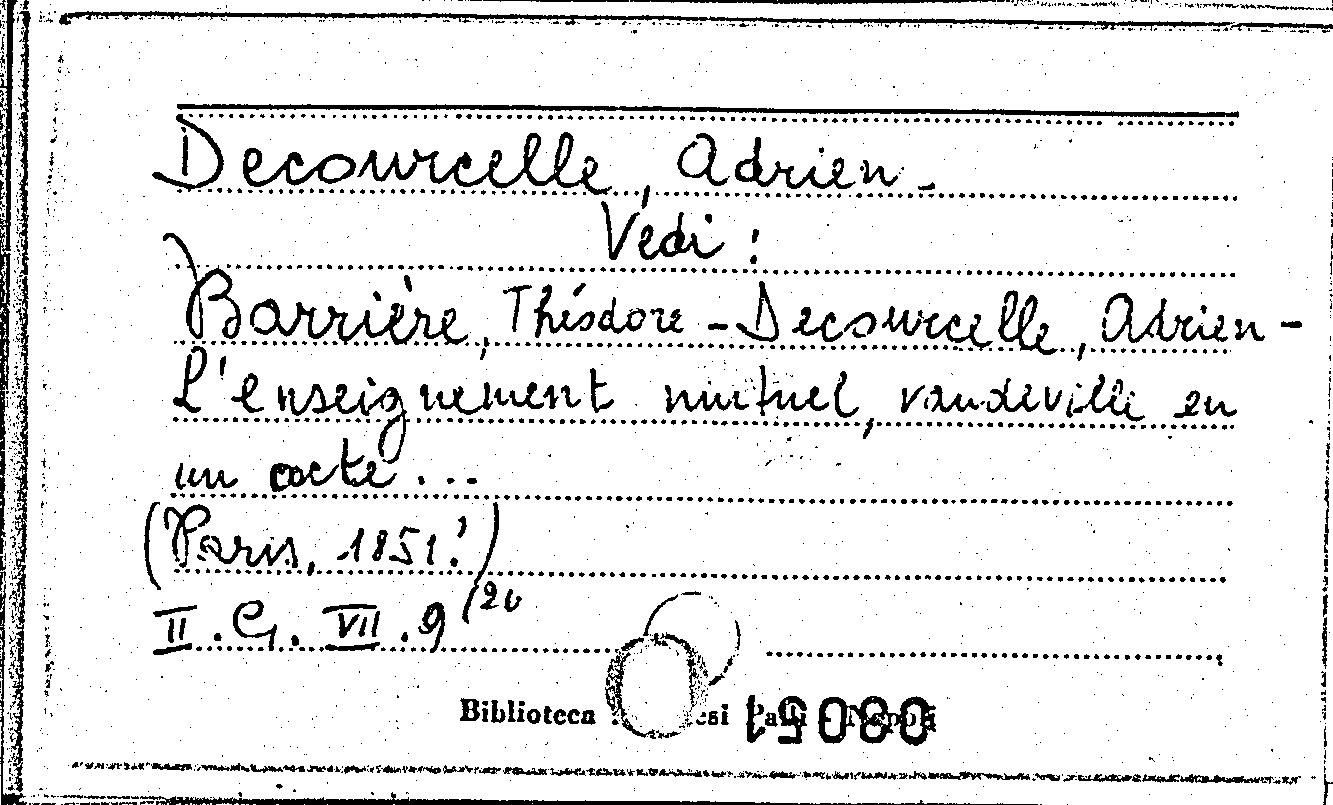 Decourcelle, Adrien -
Vedi :
Barrière, Théodore - Decourcelle, Adrien -
L'enseignement mutuel, vaudeville en
un acte ...
(Paris, 1851!)
II. G. VII. 9 (20
Biblioteca esi Palli - Napoli